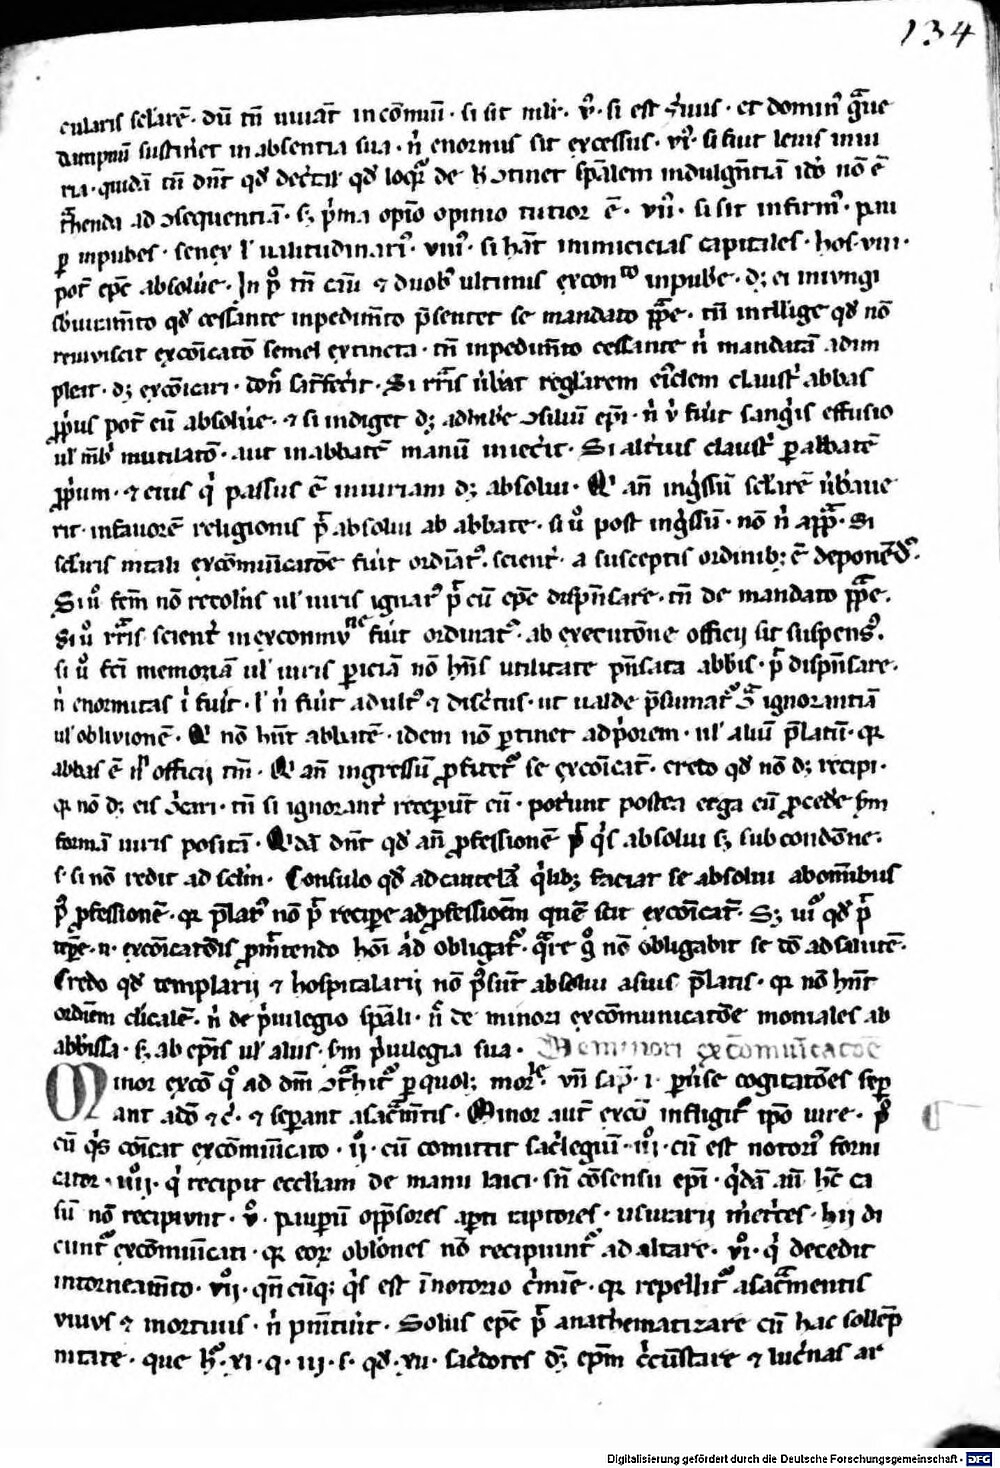 134
cularis sel'arē · dū tñ uiuāt in cōmuni · si sit mlr̄ · v° · si est s'uus · et domin' gͣue
dampnū sustin'et in absentia sua · n' enormis sit excessus · vi° · si fuit leuis iniu
ria · quidā tñ dn̄t qd' decͬtal' qd' loqr̄ de h' ꝯtinet spālem indulgn̄tiā idō nō ē
tͣhenda ad ꝯsequentiā · sꝫ p'ma opīo opinio tutior ē · vii° · si sit infirm' · paup
ꝑ inpubes · senex l' ualitudinari' · viii° · si hāt inimicicias capitales · hos viii ·
pot' epc̄ absolu'e · In p° tñ cāu ⁊ duob' ultimis exconto inpub'e · dꝫ ei iniungi
sb' iuram̄to qd' cessante inpedim̄to p̄sentet se mandato ppͣe · tñ intellige qd' nō
reiuiscit excōicatō semel extincta · tñ inpedim̄to cessante n' mandatū adim
pleat · dꝫ excōicari · don̄ satͥfec'it · Si rͬͣis v'b'at reglarem ei'dem claustͥ abbas
ꝓpͥus pot' eū absolu'e · ⁊ si indiget dꝫ adhib'e ꝯsiliū epī · n' v' fu'it sangͥs effusio
ul' mb'i mutilatō · aut in abbatē manū iniec'it · Si alt'ius claustͥ ꝑ abbatē
ꝓpͥum · ⁊ eius qͥ passus ē iniuriam dꝫ absolui · Qͥ an̄ ingͥssū sel'arē v'b'aue
rit · in fauorē religionis p̄t absolui ab abbate · si u° post ingͥssū · nō n' a ppͣ · Si
sel'aris in tali excōmūicatōe fu'it ordīat' · scient' · a susceptis ordinibꝫ ē deponēd' ·
Si u° fcm̄ nō recolu'is ul' iuris ignar' p̄t cū epc̄ dispn̄sare · tñ de mandato ppͣe ·
Si u° rͬͣis scient' in exconmvne fu'it ordinat' · ab executōne officij sit suspens' ·
si u° fcī memoriā ul' iuris ꝑiciā nō hn̄s utilitate pn̄sata abb'is · p̄t dispn̄sare ·
n' enormitas ī fu'it · l' n' fu'it adult' ⁊ disc'tus · ut ualde p̄sumat' ꝯͣ ignorantiā
ul' obliuionē · Qͥ nō hn̄t abbatē · idem nō ꝑtinet ad p'orem · ul' aliū p̄latū · qr
abbas ē n' officij tm̄ · Qͥ an̄ ingressū ꝓfitet' se excōicat' · credo qd' nō dꝫ recipi ·
qr nō dꝫ eis ꝯicari · tñ si ignorant' recep'unt eū · pot'unt postea erga eū ꝓced'e s'm
formā iuris positā · Qͥdā dn̄t qd' an̄ ꝓfessionē p̄t qͥs absolui sꝫ sub condōne ·
s · si nō redit ad sclm̄ · Consulo qd' ad cautelā qͥlibꝫ faciat se absolui ab om̄ibus
p° ꝓfessionē · qr p̄lat' nō p̄t recipe ad ꝓfessioēm quē scit excōicat' · Sꝫ ui° qd' p̄t
Credo qd' templarij ⁊ hospitalarij nō p°sūt absolui a suis p̄latis · qr nō hn̄t
ordinem cl'icalē · n' de p'uilegio spāli · n' de minori excōmunicatōe moniales ab
abb'issa · sꝫ ab ep̄is ul' aliis · s'm p'uilegia sua · De minori excōmūicatōe
Minor excō q° ad dm̄ ꝯtͣhit' ꝑ quolꝫ mor' · vn̄ sap · i · p'u'se cogitatōes sep
ant a dō ⁊ c' · ⁊ sep̄ant a sacͣm̄tis · Minor aut' excō infligit' ipō iure · p°
cū qͥs cōicat excōmūicato · ij° · cū comittit sac'legiū · iij° · cū est notori' forni
cator · iiij · qͥ recipit eccl'iam de manu laici · sn̄ cōsensu epī · qͥdā aū hc̄ ca
sū nō recipiunt · v° · paupū opp̄sores apti raptores · usurarij m'etͥces · hij di
cunt' excōmūicati · qr eoꝝ oblōnes nō recipiunt' ad altare · vi° · qͥ decedit
in torneam̄to · vij° · qn̄cūqꝫ qͥs est ī notorio cͥmīe · qr repellit' a sacͣmentis
viuus ⁊ mortuus · n' pm̄tuit · Solus epc̄ p̄t anathematizare cū hac sollēp
nitate · que h' · xi · q · iij · s · qd' · xii · sac'dotes dꝫ epm̄ c'cūstare ⁊ luc'nas ar
Digitalisierung gefördert durch die Deutsche Forschungsgemeinschaft · DFG